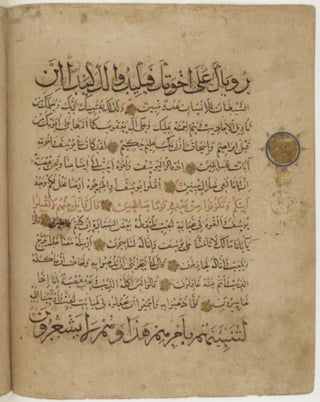 رؤياك على اخوتك فيكيدوا لك كيدا ان
الشيطان للانسان عدو مبين وكذلك يجتبيك ربك ويعلمك من
تاويل الاحاديث ويتم نعمته عليك وعلى ال يعقوب كما اتمها على ابويك من
قبل ابراهيم واسحاق ان ربك عليم حكيم لقد كان في يوسف واخوته
ايات للسائلين اذ قالوا ليوسف واخوه احب الى ابينا منا ونحن عصبة
ان ابانا لفي ضلال مبين اقتلوا يوسف او اطرحوه ارضا يخل لكم وجه
ابيكم وتكونوا من بعده قوما صالحين قال قائل منهم لا تقتلوا
يوسف والقوه في غيابة الجب يلتقطه بعض السيارة ان كنتم فاعلين قالوا
يا ابانا ما لك لا تامنا على يوسف وانا له لناصحون ارسله معنا غدا يرتع
ويلعب وانا له لحافظون قال اني ليحزنني ان تذهبوا به واخاف ان ياكله
الذئب وانتم عنه غافلون قالوا لئن اكله الذئب ونحن عصبة انا اذا
لخاسرون فلما ذهبوا به واجمعوا ان يجعلوه في غيابت الجب واوحينا اليه
لتنبئنهم بامرهم هذا وهم لا يشعرون